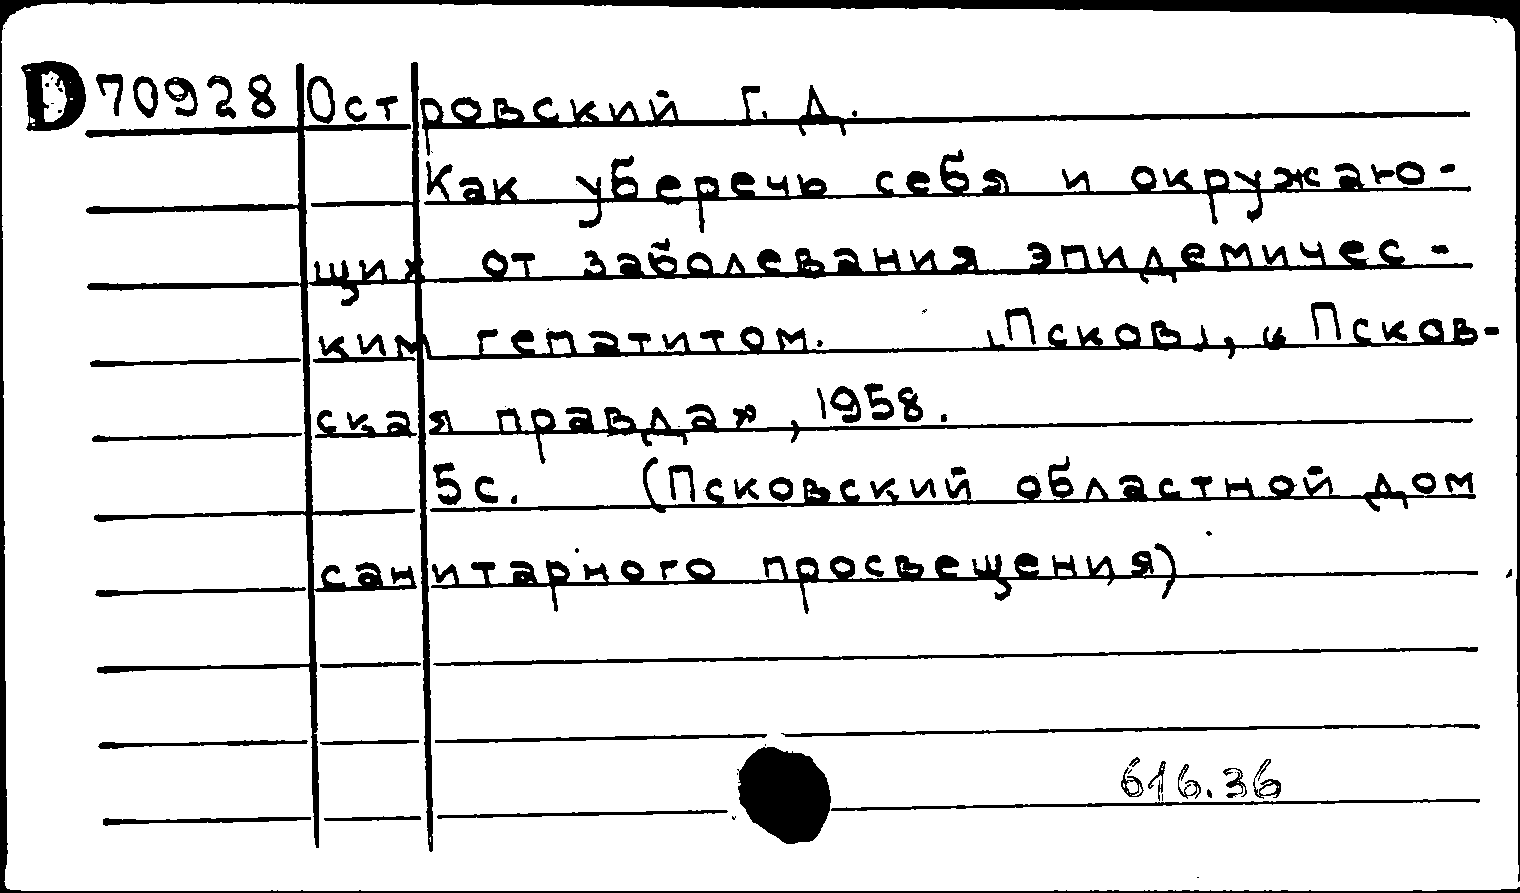 D 70928 Островский Г. Д.
Как уберечь себя и окружаю-
щих от заболевания эпидемичес-
ким гепатитом. [Псков], «Псков-
ская правда», 1958.
5 с. (Псковский областной дом
санитарного просвещения)
616.36